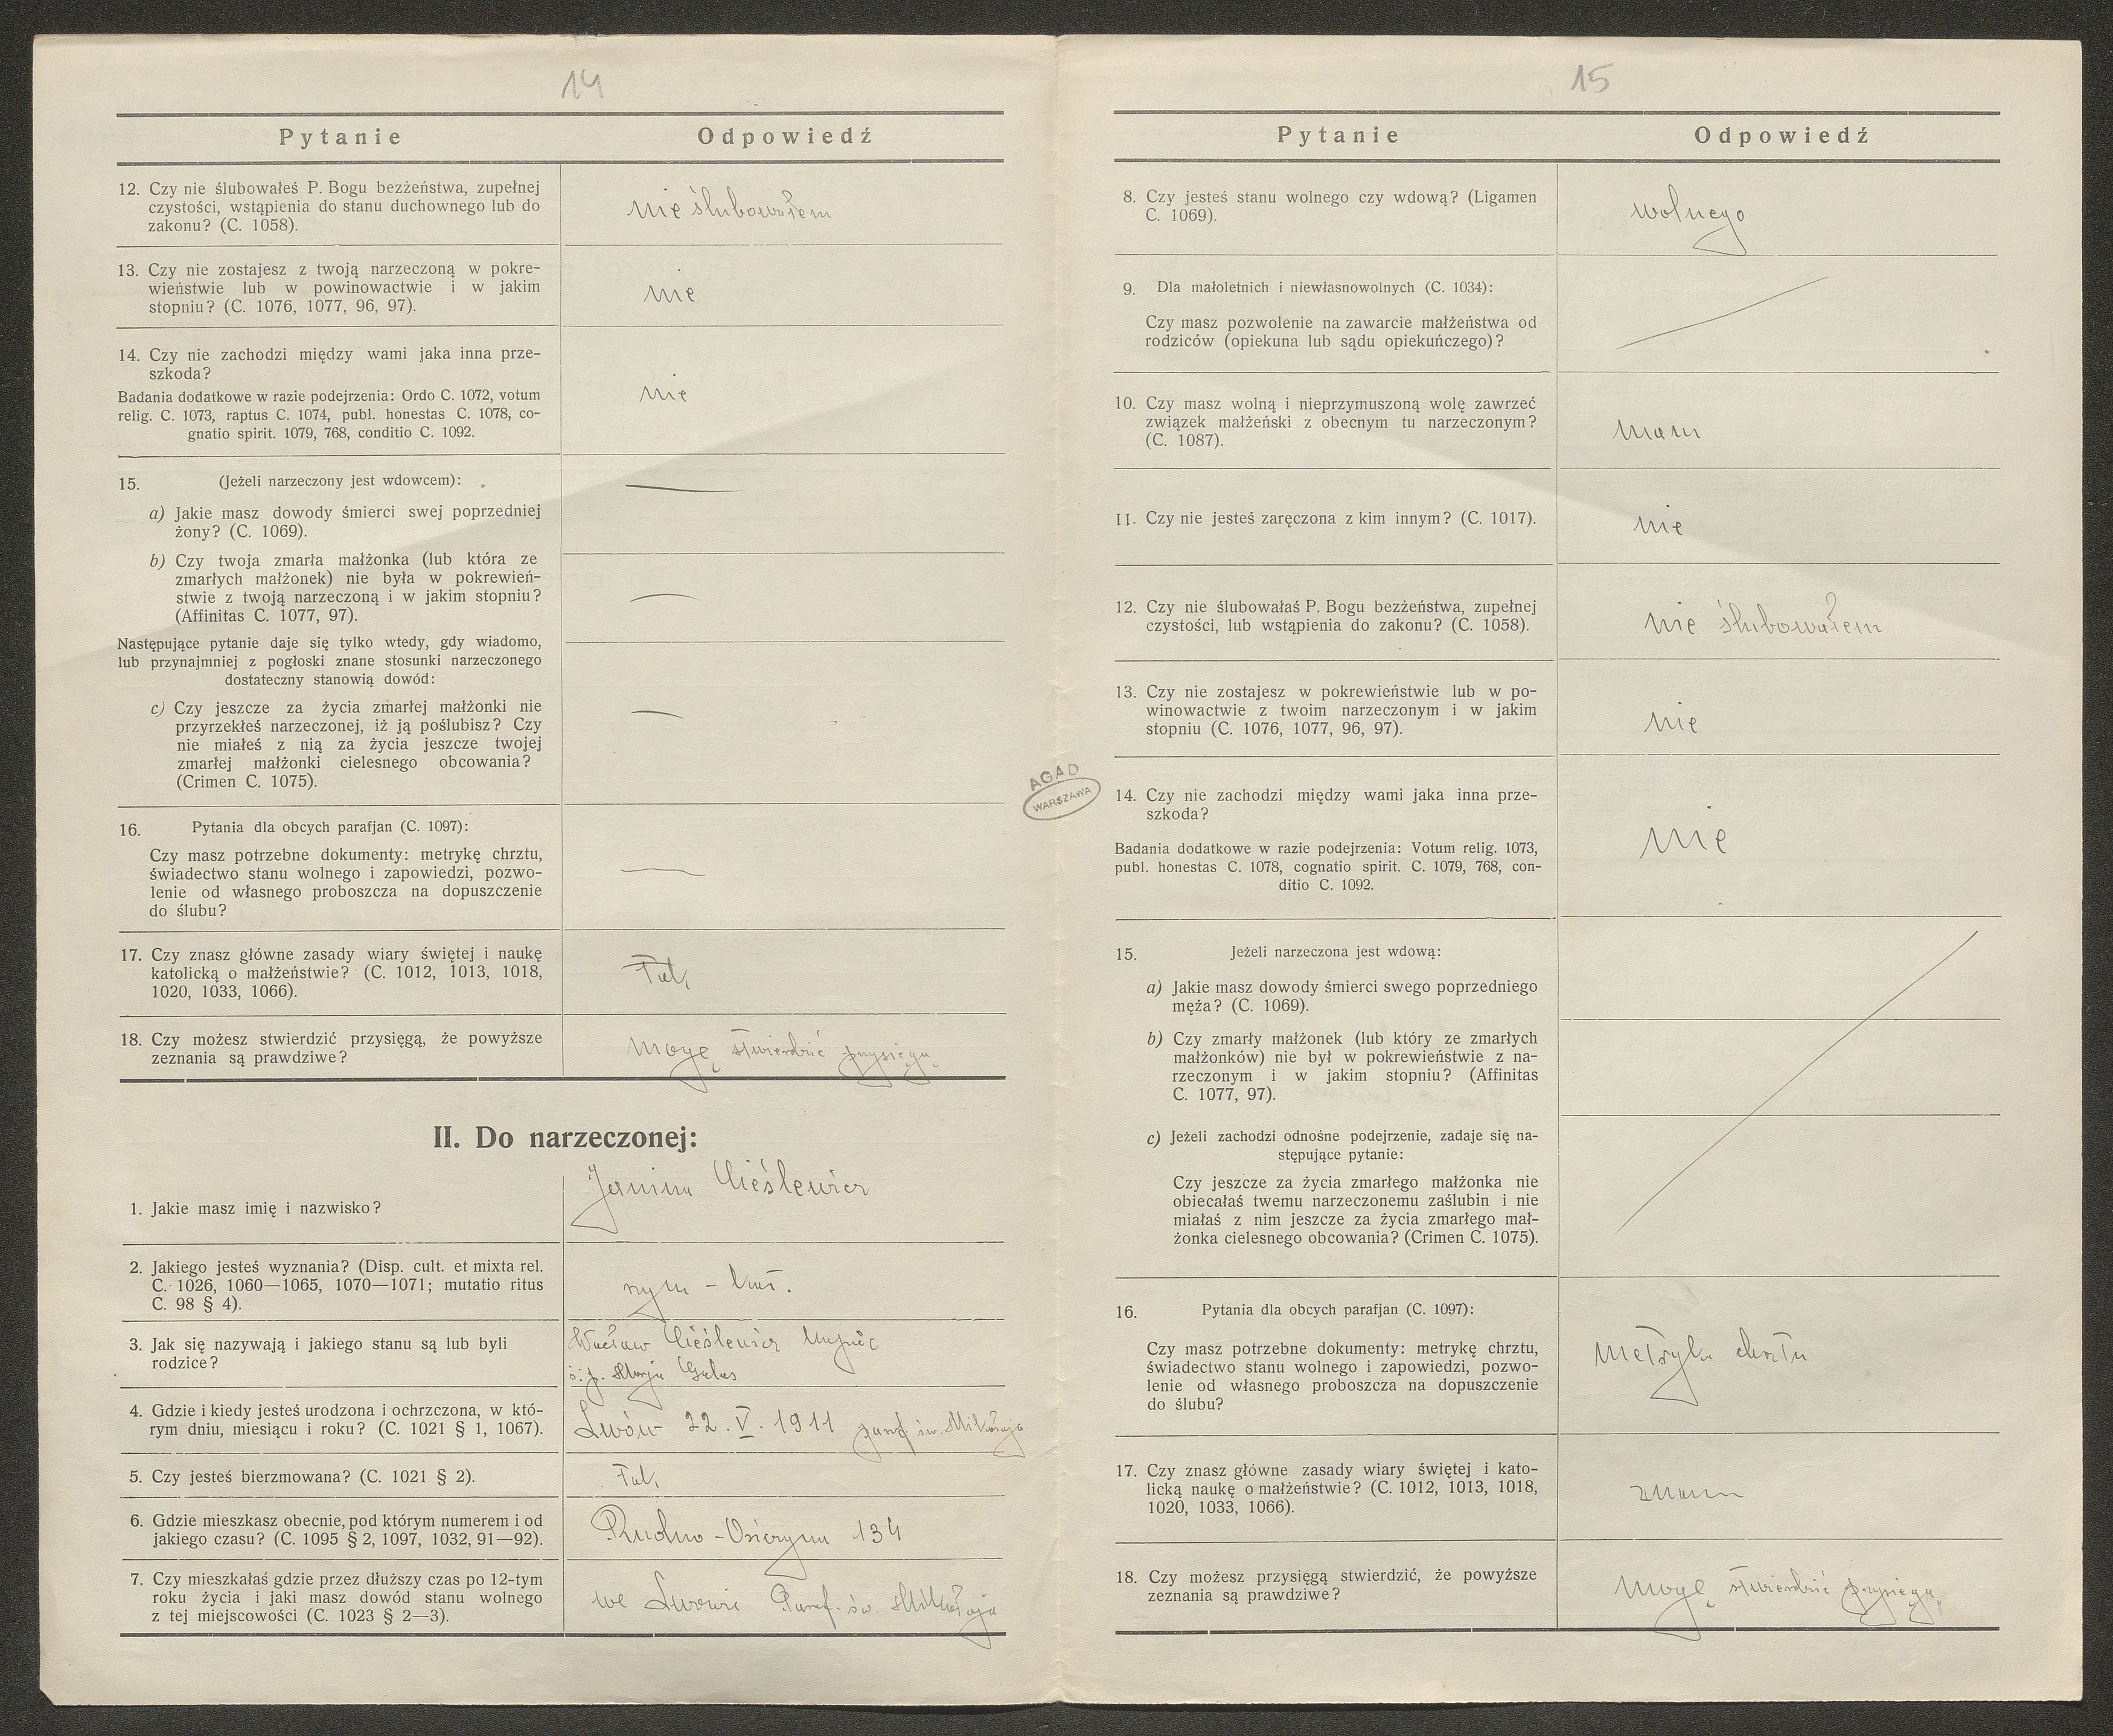 14
Pytanie Odpowiedź
12. Czy nie ślubowałeś P. Bogu bezżeństwa, zupełnej
czystości, wstąpienia do stanu duchownego lub do
zakonu? (C. 1058).
nie ślubowałem
13. Czy nie zostajesz z twoją narzeczoną w pokre-
wieństwie lub w powinowactwie i w jakim
stopniu? (C. 1076, 1077, 96, 97).
nie
14. Czy nie zachodzi między wami jaka inna prze-
szkoda?
Badania dodatkowe w razie podejrzenia: Ordo C. 1072, votum
relig. C. 1073, raptus C. 1074, publ. honestas C. 1078, co-
gnatio spirit. 1079, 768, conditio C. 1092.
nie
15. (Jeżeli narzeczony jest wdowcem):
a) Jakie masz dowody śmierci swej poprzedniej
żony? (C. 1069).
b) Czy twoja zmarła małżonka (lub która ze
zmarłych małżonek) nie była w pokrewień-
stwie z twoją narzeczoną i w jakim stopniu?
(Affinitas C. 1077, 97).
Następujące pytanie daje się tylko wtedy, gdy wiadomo,
lub przynajmniej z pogłoski znane stosunki narzeczonego
dostateczny stanowią dowód:
c) Czy jeszcze za życia zmarłej małżonki nie
przyrzekłeś narzeczonej, iż ją poślubisz? Czy
nie miałeś z nią za życia jeszcze twojej
zmarłej małżonki cielesnego obcowania?
(Crimen C. 1075).
16. Pytania dla obcych parafjan (C. 1097):
Czy masz potrzebne dokumenty: metrykę chrztu,
świadectwo stanu wolnego i zapowiedzi, pozwo-
lenie od własnego proboszcza na dopuszczenie
do ślubu?
17. Czy znasz główne zasady wiary świętej i naukę
katolicką o małżeństwie? (C. 1012, 1013, 1018,
1020, 1033, 1066).
Tak
18. Czy możesz stwierdzić przysięgą, że powyższe
zeznania są prawdziwe?
mogę stwierdzić przysięgą
II. Do narzeczonej:
1. Jakie masz imię i nazwisko?
Janina Cieślewicz
2. Jakiego jesteś wyznania? (Disp. cult. et mixta rel.
C. 1026, 1060—1065, 1070—1071; mutatio ritus
C. 98 § 4).
rzym - kat.
3. Jak się nazywają i jakiego stanu są lub byli
rodzice?
Wacław Cieślewicz
ś. p. Marja Galas
4. Gdzie i kiedy jesteś urodzona i ochrzczona, w któ-
rym dniu, miesiącu i roku? (C. 1021 § 1, 1067).
Lwów 22. V. 1911 paraf św. Mikołaja
5. Czy jesteś bierzmowana? (C. 1021 § 2).
Tak
6. Gdzie mieszkasz obecnie, pod którym numerem i od
jakiego czasu? (C. 1095 § 2, 1097, 1032, 91—92).
Rudno - 134
7. Czy mieszkałaś gdzie przez dłuższy czas po 12-tym
roku życia i jaki masz dowód stanu wolnego
z tej miejscowości (C. 1023 § 2—3).
we Lwowie Paraf. św. Mikołaja
AGAD
WARSZAWA
15
Pytanie Odpowiedź
8. Czy jesteś stanu wolnego czy wdową? (Ligamen
C. 1069).
wolnego
9. Dla małoletnich i niewłasnowolnych (C. 1034):
Czy masz pozwolenie na zawarcie małżeństwa od
rodziców (opiekuna lub sądu opiekuńczego)?
10. Czy masz wolną i nieprzymuszoną wolę zawrzeć
związek małżeński z obecnym tu narzeczonym?
(C. 1087).
mam
11. Czy nie jesteś zaręczona z kim innym? (C. 1017).
nie
12. Czy nie ślubowałaś P. Bogu bezżeństwa, zupełnej
czystości, lub wstąpienia do zakonu? (C. 1058).
nie ślubowałem
13. Czy nie zostajesz w pokrewieństwie lub w po-
winowactwie z twoim narzeczonym i w jakim
stopniu (C. 1076, 1077, 96, 97).
nie
14. Czy nie zachodzi między wami jaka inna prze-
szkoda?
Badania dodatkowe w razie podejrzenia: Votum relig. 1073,
publ. honestas C. 1078, cognatio spirit. C. 1079, 768, con-
ditio C. 1092.
nie
15. Jeżeli narzeczona jest wdową:
a) Jakie masz dowody śmierci swego poprzedniego
męża? (C. 1069).
b) Czy zmarły małżonek (lub który ze zmarłych
małżonków) nie był w pokrewieństwie z na-
rzeczonym i w jakim stopniu? (Affinitas
C. 1077, 97).
c) Jeżeli zachodzi odnośne podejrzenie, zadaje się na-
stępujące pytanie:
Czy jeszcze za życia zmarłego małżonka nie
obiecałaś twemu narzeczonemu zaślubin i nie
miałaś z nim jeszcze za życia zmarłego mał-
żonka cielesnego obcowania? (Crimen C. 1075).
16. Pytania dla obcych parafjan (C. 1097):
Czy masz potrzebne dokumenty: metrykę chrztu,
świadectwo stanu wolnego i zapowiedzi, pozwo-
lenie od własnego proboszcza na dopuszczenie
do ślubu?
Metryka chrztu
17. Czy znasz główne zasady wiary świętej i kato-
licką naukę o małżeństwie? (C. 1012, 1013, 1018,
1020, 1033, 1066).
znam
18. Czy możesz przysięgą stwierdzić, że powyższe
zeznania są prawdziwe?
mogę stwierdzić przysięgą